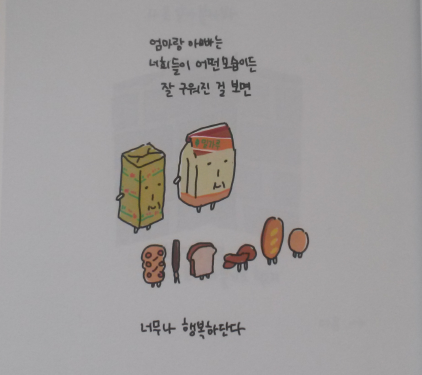 엄마랑 아빠는
너희들이 어떤 모습이든
잘 구워진 걸 보면
너무나 행복하단다